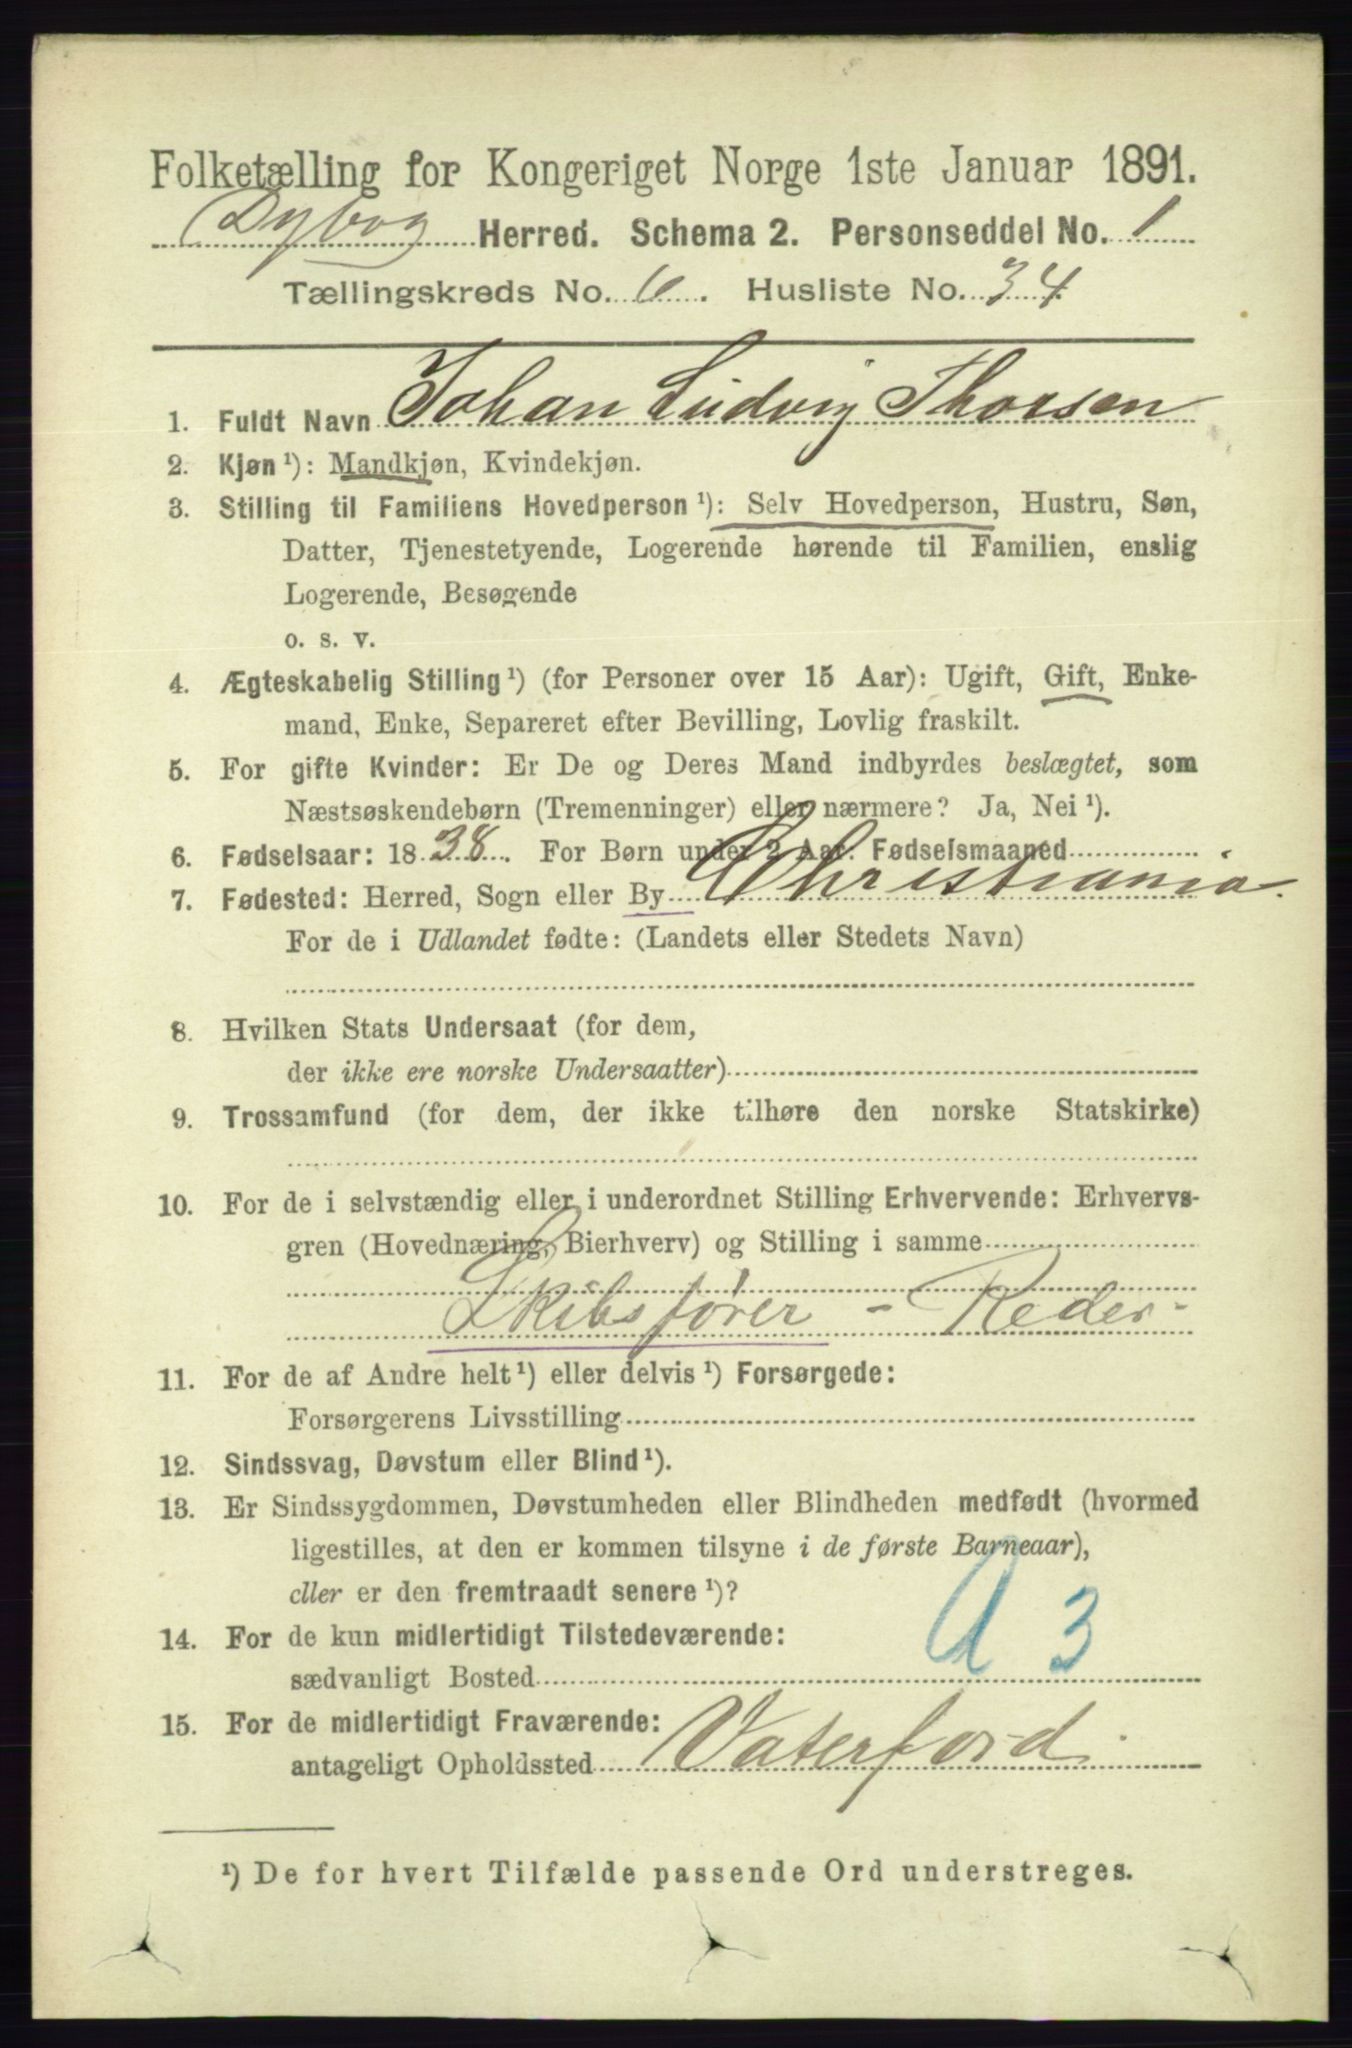 Folketælling for Kongeriget Norge 1ste Januar 1891.
Dybvog Herred. Schema 2. Personseddel No. 1
Tællingskreds No. 6. Husliste No. 34
1. Fuldt Navn Johan Ludvig Thorsen
2. Kjøn ¹): Mandkjøn, Kvindekjøn.
3. Stilling til Familiens Hovedperson ¹): Selv Hovedperson, Hustru, Søn,
Datter, Tjenestetyende, Logerende hørende til Familien, enslig
Logerende, Besøgende
o. s. v.
4. Ægteskabelig Stilling ¹) (for Personer over 15 Aar): Ugift, Gift, Enke-
mand, Enke, Separeret efter Bevilling, Lovlig fraskilt.
5. For gifte Kvinder: Er De og Deres Mand indbyrdes beslægtet, som
Næstsøskendebørn (Tremenninger) eller nærmere? Ja, Nei ¹).
6. Fødselsaar: 1838. For Børn under 2 Aar: Fødselsmaaned
7. Fødested: Herred, Sogn eller By Christiania.
For de i Udlandet fødte: (Landets eller Stedets Navn)
8. Hvilken Stats Undersaat (for dem,
der ikke ere norske Undersaatter)
9. Trossamfund (for dem, der ikke tilhøre den norske Statskirke)
10. For de i selvstændig eller i underordnet Stilling Erhvervende: Erhvervs-
gren (Hovednæring, Bierhverv) og Stilling i samme
Skibsfører - Reder -
11. For de af Andre helt ¹) eller delvis ¹) Forsørgede:
Forsørgerens Livsstilling
12. Sindssvag, Døvstum eller Blind ¹).
13. Er Sindssygdommen, Døvstumheden eller Blindheden medfødt (hvormed
ligestilles, at den er kommen tilsyne i de første Barneaar),
eller er den fremtraadt senere ¹)?
14. For de kun midlertidigt Tilstedeværende:
sædvanligt Bosted
U 3
15. For de midlertidigt Fraværende:
antageligt Opholdssted Vaterford.
¹) De for hvert Tilfælde passende Ord understreges.